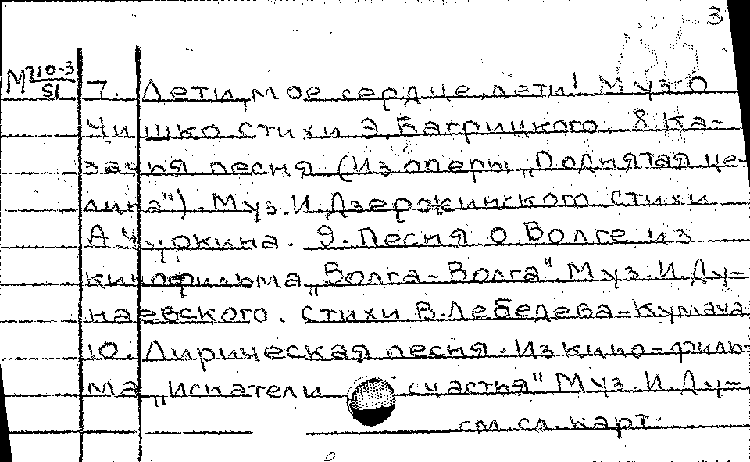 3
М210-3
51
7. Лети, мое сердце, лети! Муз О
Чишко стихи Э. Багрицкого. 8 Ка-
зачья песня (Из оперы „Поднятая це-
лина"). Муз. И. Дзержинского стихи
А Чуркина. 9. Песня о Волге из
кинофильма „Волга-Волга" Муз. И. Ду-
наевского. стихи В. Лебедева-Кумача
10. Лирическая песня. Из кино-филь-
ма „Искатели счастья" Муз. И. Ду-
см. сл. карт.